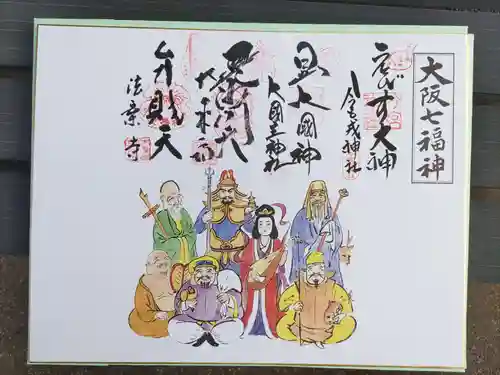 大阪七福神
えびす大神
今宮戎神社
大国神
大国主神社
毘沙門天
大乗坊
弁財天
法案寺